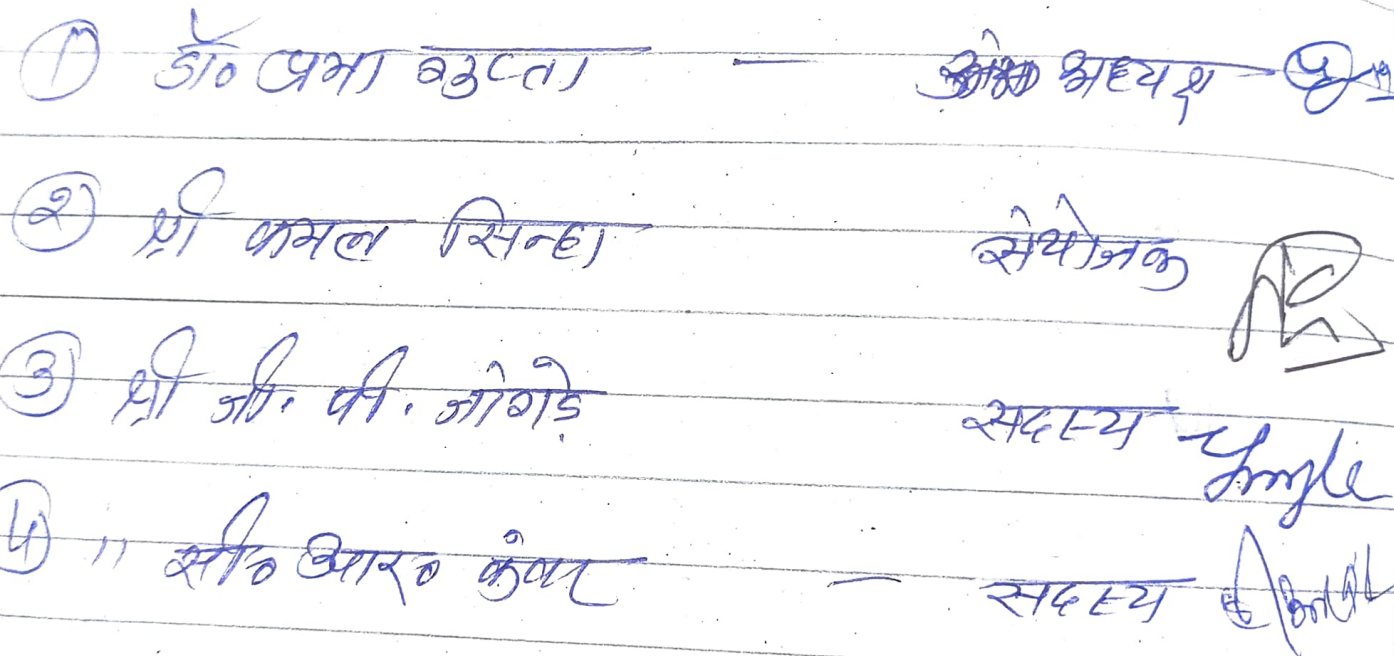 ① डॉ० प्रभा गुप्ता — अध्यक्ष
② श्री कमल सिन्हा संयोजक
③ श्री जी. पी. जांगड़े सदस्य
④ " सी० आर० कंवर — सदस्य